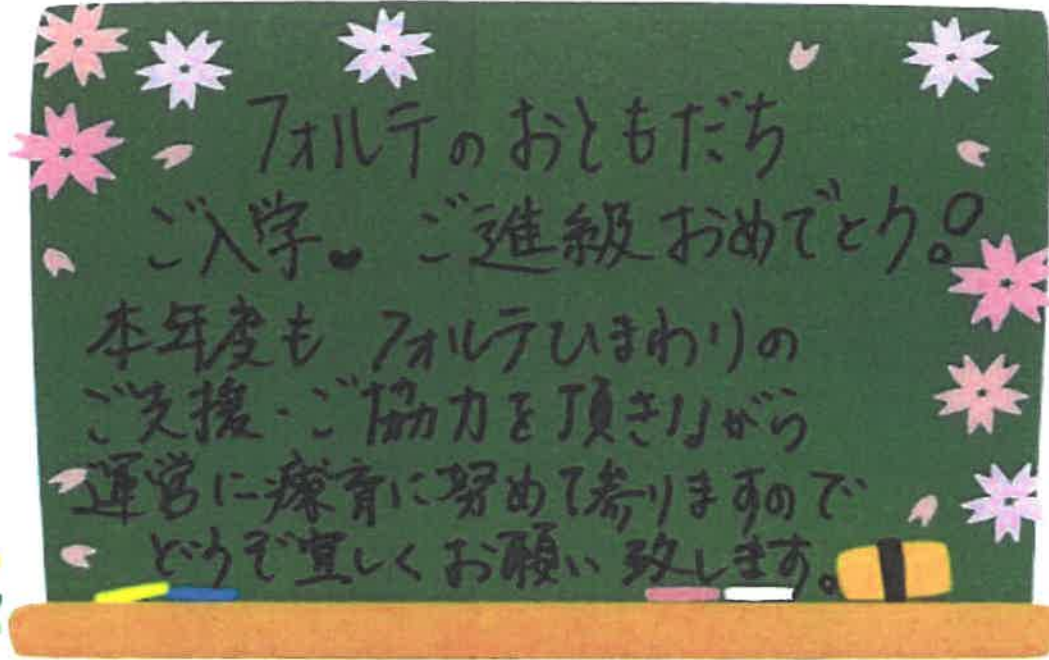 フォルテのおともだち
ご入学。ご進級おめでとう!
本年度もフォルテひまわりの
ご支援・ご協力を頂きながら
運営に療育に努めて参りますので
どうぞ宜しくお願い致します。